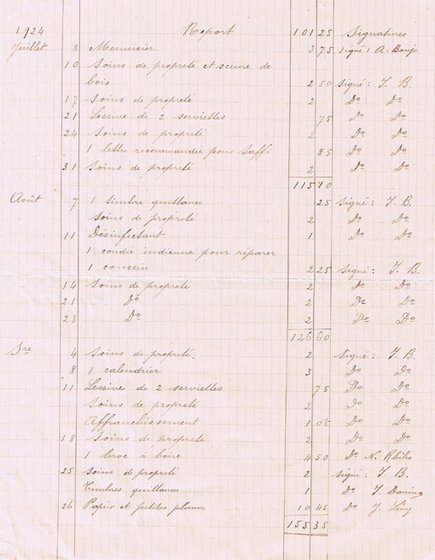 1924 Report 101 25 Signatures
Juillet 8 Menuisier 3 75 signé: A.
10 Soins de propreté et sciure de
bois 2 50 Signé: J. B.
17 Soins de propreté 2 Do Do
21 Lessive de 2 serviettes 75 Do Do
24 Soins de propreté 2 Do Do
1 lettre recommandée pour 85 Do Do
31 Soins de propreté 2 Do Do
115 10
Août 7 1 timbre quittance 25 Signé: J. B.
Soins de propreté 2 Do Do
11 Désinfectant 1 Do Do
1 coudée indienne pour réparer
1 coussin 2 25 Signé: J. B.
14 Soins de propreté 2 Do Do
21 Do 2 Do Do
28 Do 2 Do Do
126 60
Bre 4 Soins de propreté 2 Signé: J. B.
8 1 calendrier 3 Do Do
11 Lessive de 2 serviettes 75 Do Do
Soins de propreté 2 Do Do
Affranchissement 1 05 Do Do
18 Soins de propreté 2 Do Do
1 broc à boire 4 50 Do N.
25 Soins de propreté 2 signé: J. B.
Timbres quittances 1 Do J.
26 Papier et petites plumes 10 45 Do J. Levy
155 35